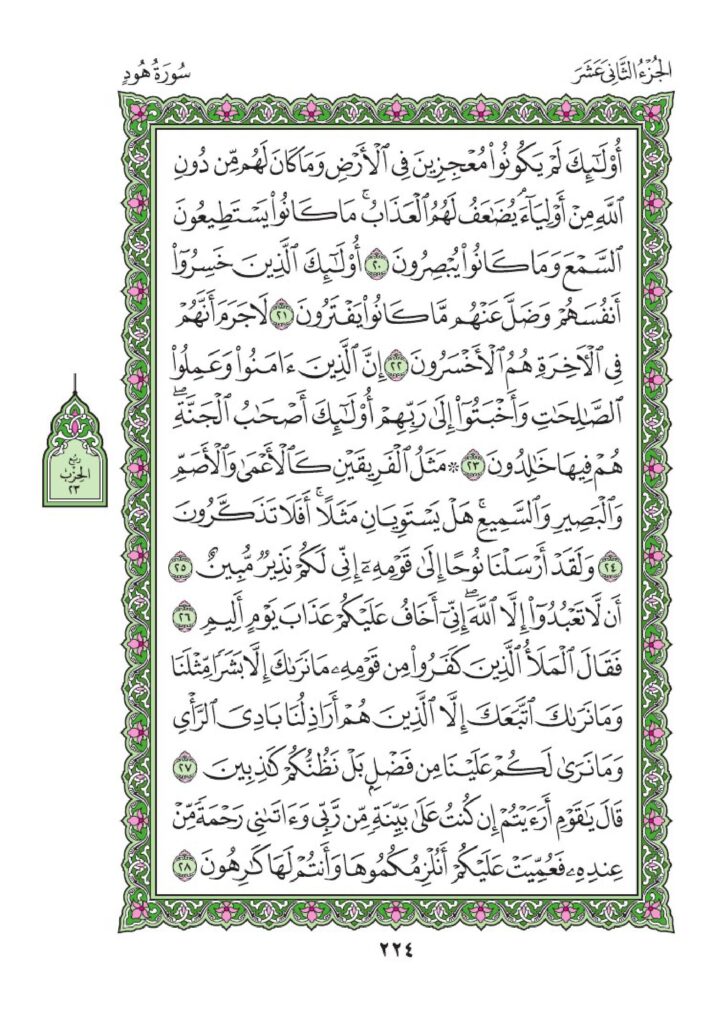 الجُزْءُ الثَّانِي عَشَرَ
سُورَةُ هُودٍ
أُوْلَٰٓئِكَ لَمۡ يَكُونُواْ مُعۡجِزِينَ فِي ٱلۡأَرۡضِ وَمَا كَانَ لَهُم مِّن دُونِ
ٱللَّهِ مِنۡ أَوۡلِيَآءَۘ يُضَٰعَفُ لَهُمُ ٱلۡعَذَابُۚ مَا كَانُواْ يَسۡتَطِيعُونَ
ٱلسَّمۡعَ وَمَا كَانُواْ يُبۡصِرُونَ ٢٠ أُوْلَٰٓئِكَ ٱلَّذِينَ خَسِرُوٓاْ
أَنفُسَهُمۡ وَضَلَّ عَنۡهُم مَّا كَانُواْ يَفۡتَرُونَ ٢١ لَا جَرَمَ أَنَّهُمۡ
فِي ٱلۡأٓخِرَةِ هُمُ ٱلۡأَخۡسَرُونَ ٢٢ إِنَّ ٱلَّذِينَ ءَامَنُواْ وَعَمِلُواْ
ٱلصَّٰلِحَٰتِ وَأَخۡبَتُوٓاْ إِلَىٰ رَبِّهِمۡ أُوْلَٰٓئِكَ أَصۡحَٰبُ ٱلۡجَنَّةِۖ
هُمۡ فِيهَا خَٰلِدُونَ ٢٣ ۞ مَثَلُ ٱلۡفَرِيقَيۡنِ كَٱلۡأَعۡمَىٰ وَٱلۡأَصَمِّ
وَٱلۡبَصِيرِ وَٱلسَّمِيعِۚ هَلۡ يَسۡتَوِيَانِ مَثَلًاۚ أَفَلَا تَذَكَّرُونَ
٢٤ وَلَقَدۡ أَرۡسَلۡنَا نُوحًا إِلَىٰ قَوۡمِهِۦٓ إِنِّي لَكُمۡ نَذِيرٞ مُّبِينٌ ٢٥
أَن لَّا تَعۡبُدُوٓاْ إِلَّا ٱللَّهَۖ إِنِّيٓ أَخَافُ عَلَيۡكُمۡ عَذَابَ يَوۡمٍ أَلِيمٖ ٢٦
فَقَالَ ٱلۡمَلَأُ ٱلَّذِينَ كَفَرُواْ مِن قَوۡمِهِۦ مَا نَرَىٰكَ إِلَّا بَشَرٗا مِّثۡلَنَا
وَمَا نَرَىٰكَ ٱتَّبَعَكَ إِلَّا ٱلَّذِينَ هُمۡ أَرَاذِلُنَا بَادِيَ ٱلرَّأۡيِ
وَمَا نَرَىٰ لَكُمۡ عَلَيۡنَا مِن فَضۡلِۭ بَلۡ نَظُنُّكُمۡ كَٰذِبِينَ ٢٧
قَالَ يَٰقَوۡمِ أَرَءَيۡتُمۡ إِن كُنتُ عَلَىٰ بَيِّنَةٖ مِّن رَّبِّي وَءَاتَىٰنِي رَحۡمَةٗ مِّنۡ
عِندِهِۦ فَعُمِّيَتۡ عَلَيۡكُمۡ أَنُلۡزِمُكُمُوهَا وَأَنتُمۡ لَهَا كَٰرِهُونَ ٢٨
ربع
الحزب
٢٣
٢٢٤